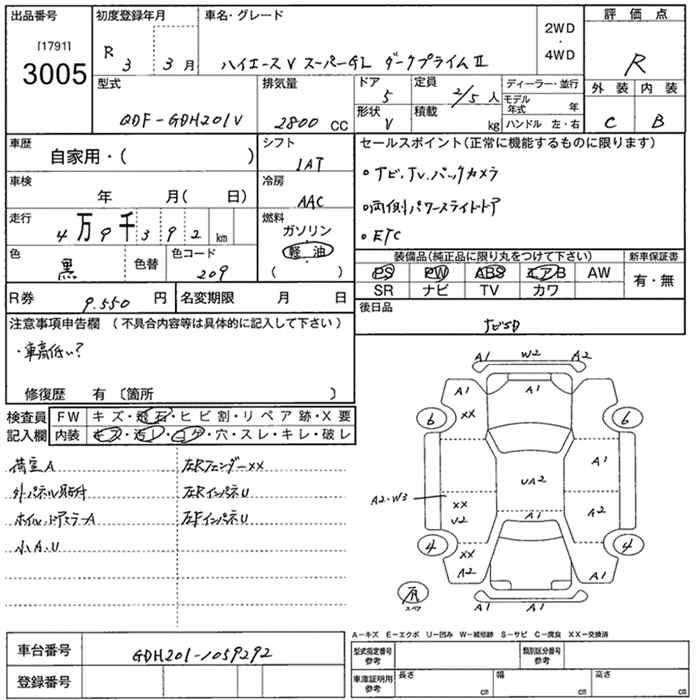 出品番号 初度登録年月 車名・グレード 2WD・4WD 評価点
［1791］
3005
R 3 3月 ハイエースV スーパーGL ダークプライムⅡ R
型式 排気量 ドア 定員 ディーラー・並行 外装 内装
QDF-GDH201V 2800 CC 5 2/5人 モデル年式 年
形状 積載 C B
V kg ハンドル 左・右
車歴 シフト セールスポイント(正常に機能するものに限ります)
自家用・( ) IAT
・ナビ,TV,バックカメラ
車検 冷房
年 月( 日) AAC
・両側パワースライドドア
走行 燃料
4万9千392km ガソリン
・ETC
色 色替 色コード 軽油
黒 209 ( )
装備品(純正品に限り丸をつけて下さい) 新車保証書
PS PW ABS エアB AW 有・無
SR ナビ TV カワ
R券 9.550円 名変期限 月 日 後日品
ナビSD
注意事項申告欄 (不具合内容等は具体的に記入して下さい)
・車高低い?
修復歴 有 〔箇所 〕
検査員記入欄
FW キズ・飛石・ヒビ割・リペア跡・X要
内装 キズ・汚レ・コゲ・穴・スレ・キレ・破レ
荷室A 左RフェンダーXX
外パネル取付 左RインパネU
ホイル,ドアミラーA 左FインパネU
小A.U
A1 W2 A2
A1 A1
XX
6 6
A1
UA2
A2・W3
XX A2
U2 A1
4 XX 4
A2 A1
有 スペア
A1 A1
A－キズ E－エクボ U－凹み W－補修跡 S－サビ C－腐食 XX－交換済
車台番号 GDH201-1059292
登録番号
型式指定番号参考 類別区分番号参考
車庫証明用参考 長さ cm 幅 cm 高さ cm